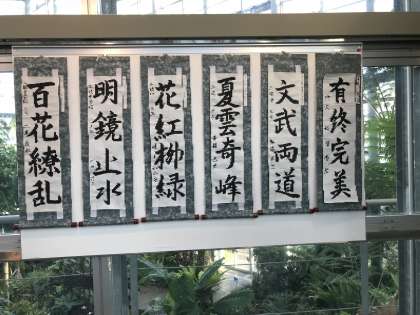 有終完美
文武両道
夏雲奇峰
花紅柳緑
明鏡止水
百花繚乱